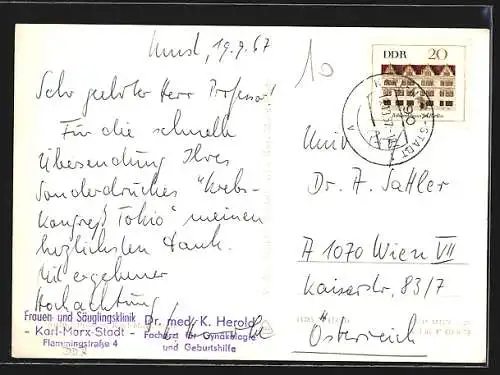 19.9.67
10
Sehr geehrter Herr Professor!
Für die schnelle
Übersendung Ihres
Sonderdruckes "Krebs-
kongreß Tokio" meinen
herzlichsten Dank.
Mit ergebener
Hochachtung
Frauen und Säuglingsklinik
- Karl-Marx-Stadt -
Flemmingstraße 4
Dr. med. K. Herold
Facharzt für Gynäkologie
und Geburtshilfe
DDR 20
STADT
Dr. A. Sattler
A 1070 Wien VII
Kaiserstr. 83/7
Österreich